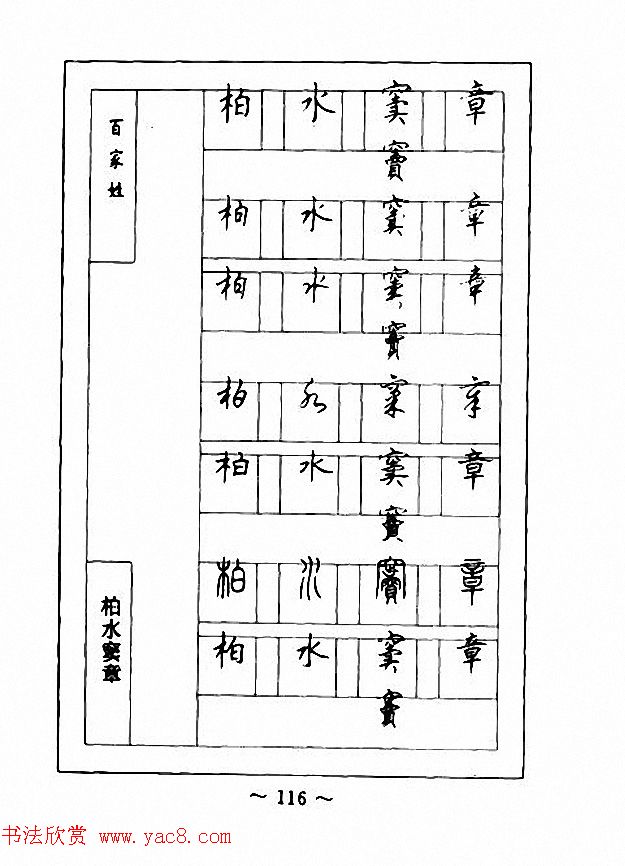 百家姓
柏 水 窦 章
竇
柏 水 窦 章
柏 水 窦 章
竇
柏 水 窦 章
柏 水 窦 章
竇
柏 水 竇 章
柏 水 窦 章
竇
柏水窦章
～ 116 ～
书法欣赏 www.yac8.com